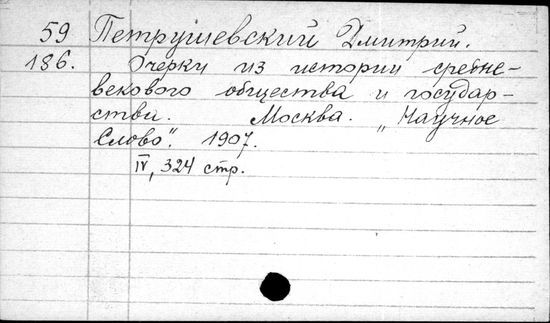 59 Петрушевский Дмитрий.
186. Очерки из истории средне-
векового общества и государ-
ства. Москва. „Научное
Слово". 1907.
IV, 324 стр.